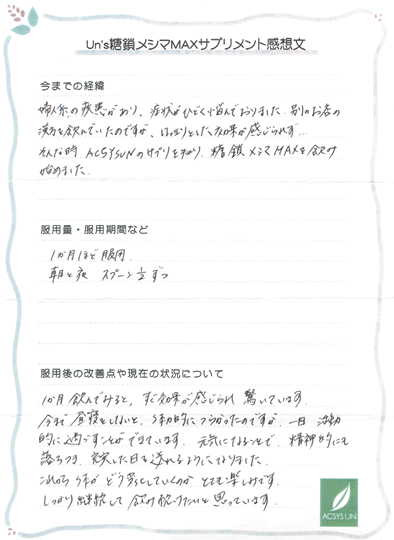 Un's糖鎖メシマMAXサプリメント感想文
今までの経緯
婦人系の疾患があり、症状がひどく悩んでおりました。別のお店の
漢方を飲んでいたのですが、はっきりとした効果が感じられず…
そんな時、ACSYSUNのサプリを知り、糖鎖メシマMAXを飲み
始めました。
服用量・服用期間など
1か月ほど服用。
朝と夜 スプーン½ずつ
服用後の改善点や現在の状況について
1か月飲んでみると、すぐ効果が感じられ驚いています。
今まで昼寝をしないと、体力的につらかったのですが、一日活動
的に過ごすことができています。元気になることで、精神的にも
落ちつき、充実した日を送れるようになりました。
これから体がどう変化していくのかとても楽しみです。
しっかり継続して飲み続けたいと思っています。
ACSYSUN